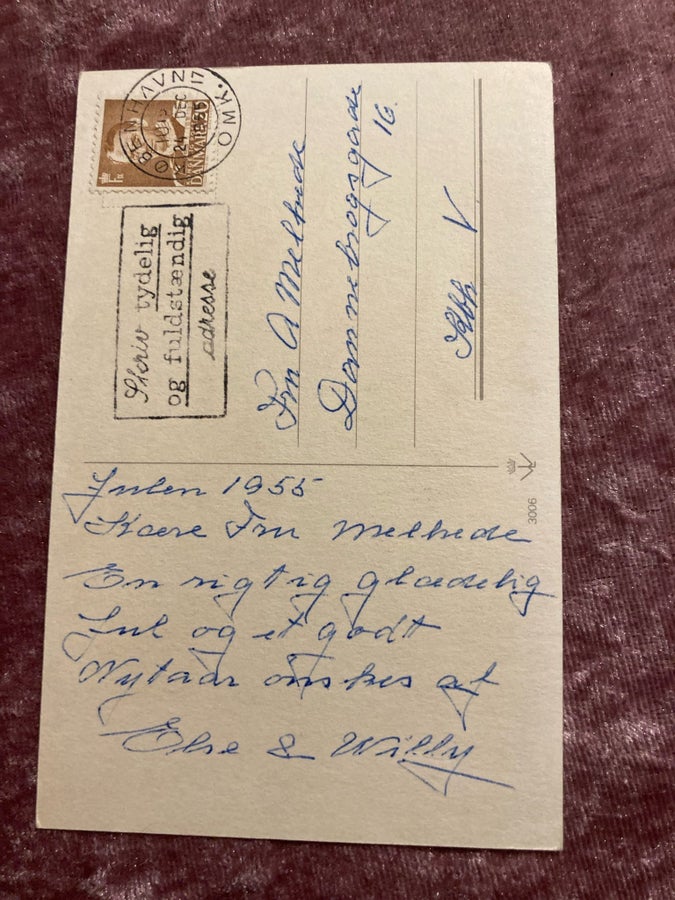 Julen 1955
Kære Fru Melhede
En rigtig glædelig
Jul og et godt
Nytaar ønskes af
Else & Willy
KØBENHAVN
OMK.
17
24 DEC
DANMARK
Skriv tydelig
og fuldstændig
adresse
Fru A Melhede
Dannebrogsgade
16.
Kbh V
3006